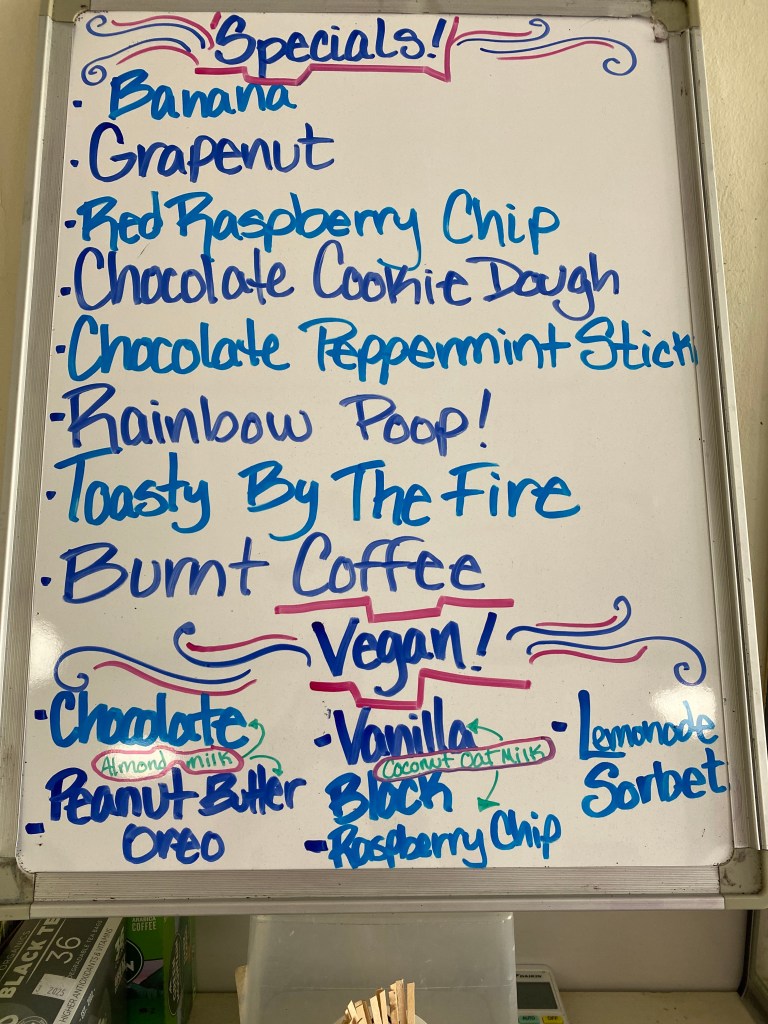 Specials!
Banana
Grapenut
Red Raspberry Chip
Chocolate Cookie Dough
Chocolate Peppermint Stick
Rainbow Poop!
Toasty By The Fire
Burnt Coffee
Vegan!
Chocolate
Almond milk
Peanut Butter
Oreo
Vanilla
Coconut Oat Milk
Black
Raspberry Chip
Lemonade
Sorbet
BLACK TE
36
HIGHER ANTIOXIDANTS & VITAMINS
ARABICA
COFFEE